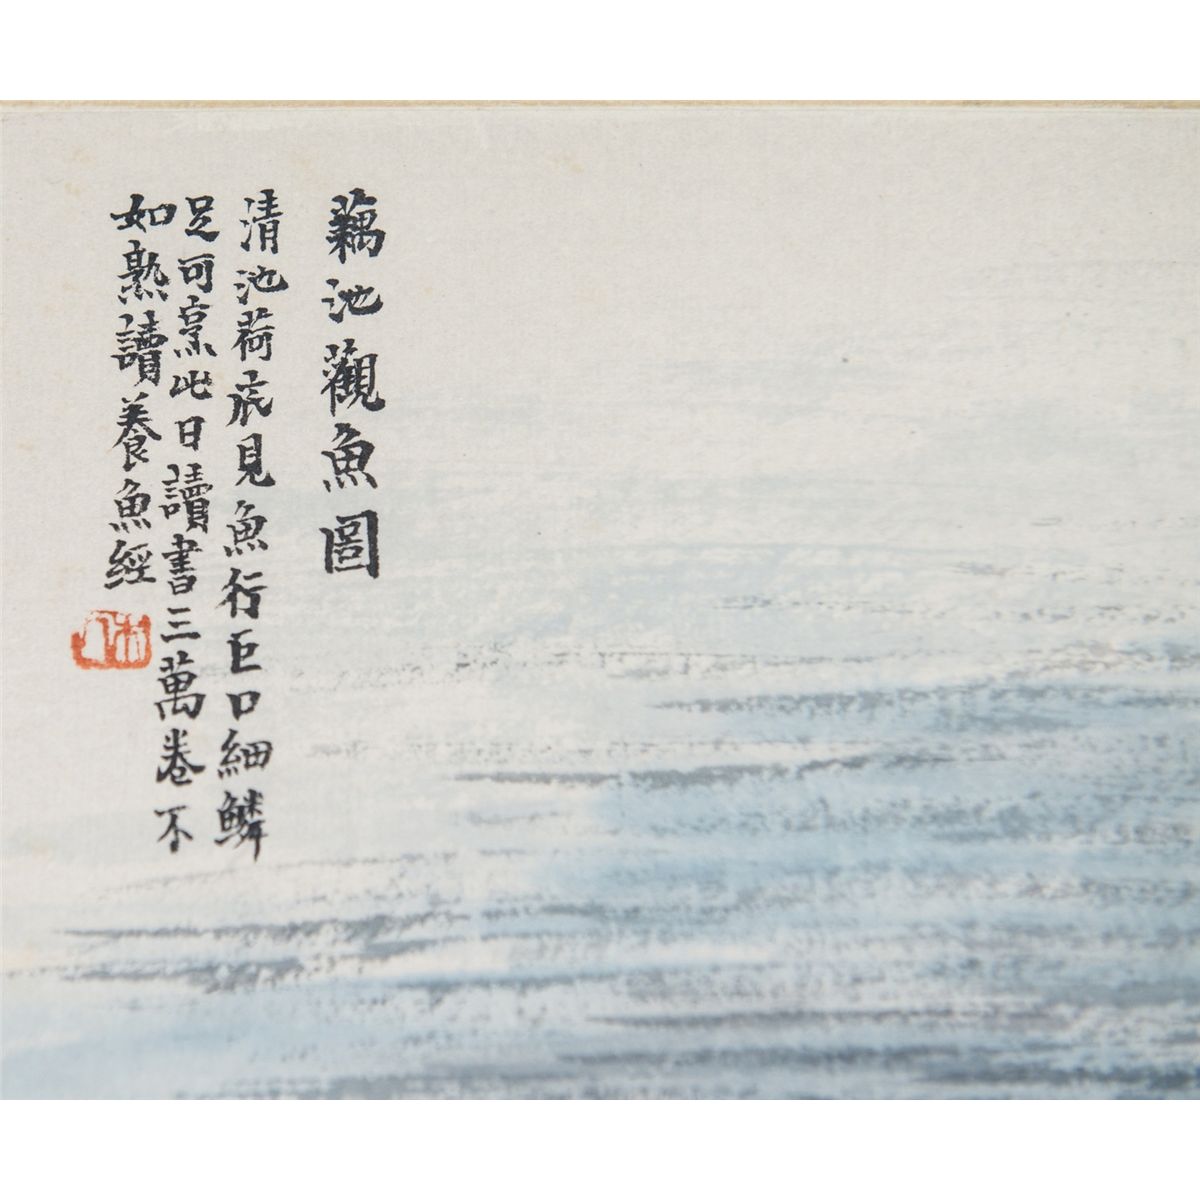 藕池觀魚圖
清池荷底見魚行巨口細鱗
足可烹此日讀書三萬卷不
如熟讀養魚經